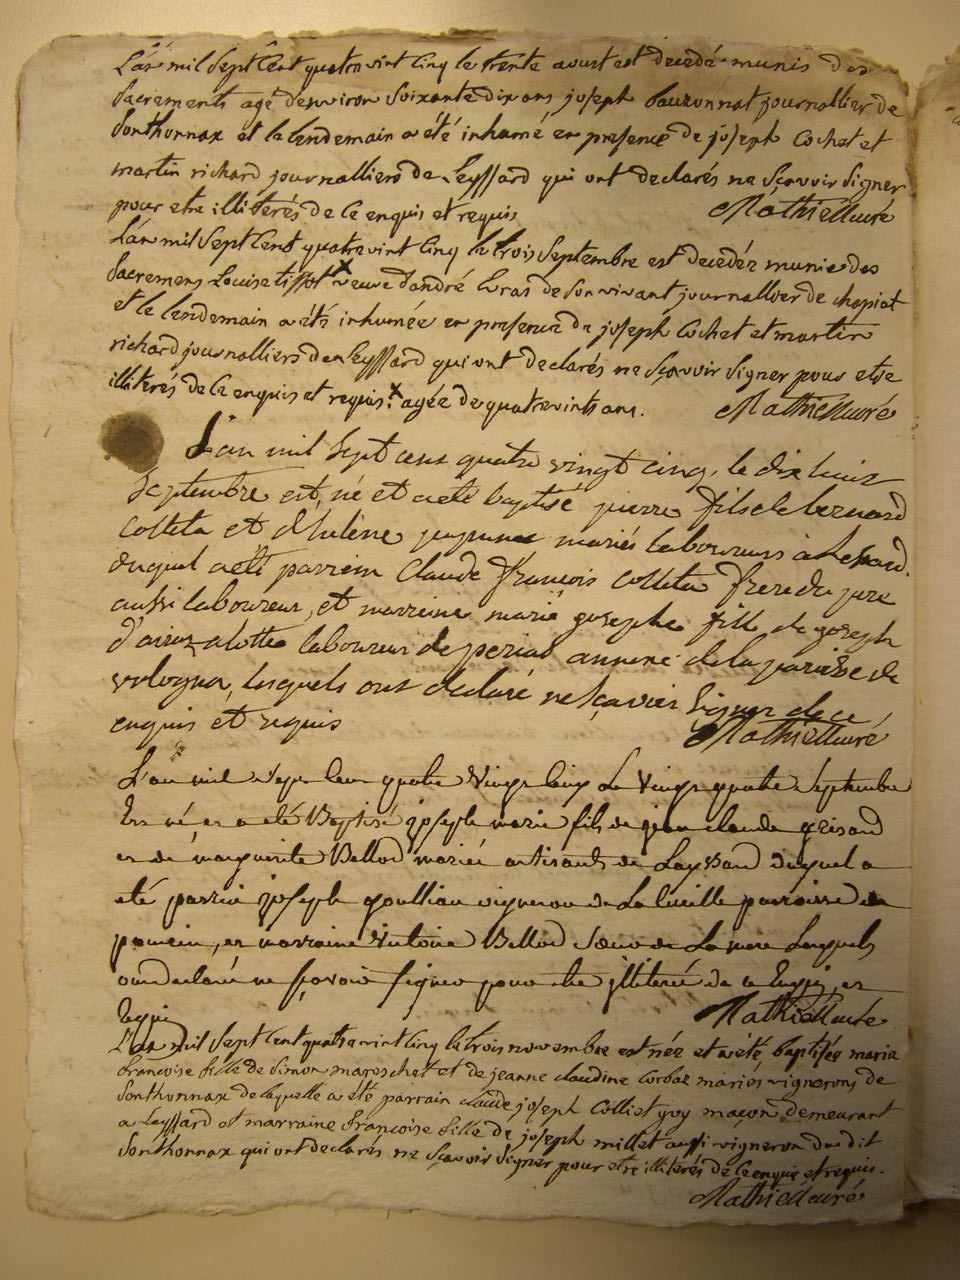 L'an mil sept cent quatre vint cinq le trente aoust est decedé munis des
sacrements agé d'environ soixante dix ans joseph journallier de
Sonthonnax et le lendemain a été inhumé en presence de joseph Cochet et
martin richard journalliers de Leyssard qui ont declarés ne sçavoir signer
pour etre illiterés de ce enquis et requis Mathieu curé
L'an mil sept cent quatre vint cinq le trois septembre est decedée munie des
sacremens Louise tissot x veuve d'andré de son vivant journallier de chapiat
et le lendemain a été inhumée en presence de joseph Cochet et martin
richard journalliers de Leyssard qui ont declarés ne sçavoir signer pour etre
illiterés de ce enquis et requis. x agée de quatre vints ans. Mathieu curé
L'an mil sept cent quatre vingt cinq, le dix huit
septembre est né et a eté baptisé pierre fils de bernard
et d'hélène mariés laboureurs à Leyssard.
duquel a eté parrein Claude françois frere du pere
aussi laboureur, et marreine marie josephe fille de joseph
laboureur de annexe de la paroisse de
vologna, lesquels ont declaré ne sçavoir signer de ce
enquis et requis Mathieu curé
L'an mil sept cent quatre vingt cinq Le vingt quatre septembre
Est né, et a eté Baptisé joseph marie fils de jean claude grisard
et de marguerite Bellod mariés artisants de Layssard duquel a
eté parrin joseph goullion vigneron de La paroisse de
poncin, et marraine Bellod soeur de La mere Lesquels
ont declaré ne sçavoir signer pour etre jlliteré de ce Enquis, et
Requis Mathieu curé
L'an mil sept cent quatre vint cinq le trois novembre est née et a été baptisée marie
francoise fille de Simon mareschet et de jeanne claudine mariés vignerons de
Sonthonnax de laquelle a été parrain claude joseph Colliet guy maçon demeurant
a Leyssard et marraine francoise fille de joseph millet aussi vigneron du dit
Sonthonnax qui ont declarés ne sçavoir signer pour etre illiterés de ce enquis et requis.
Mathieu curé